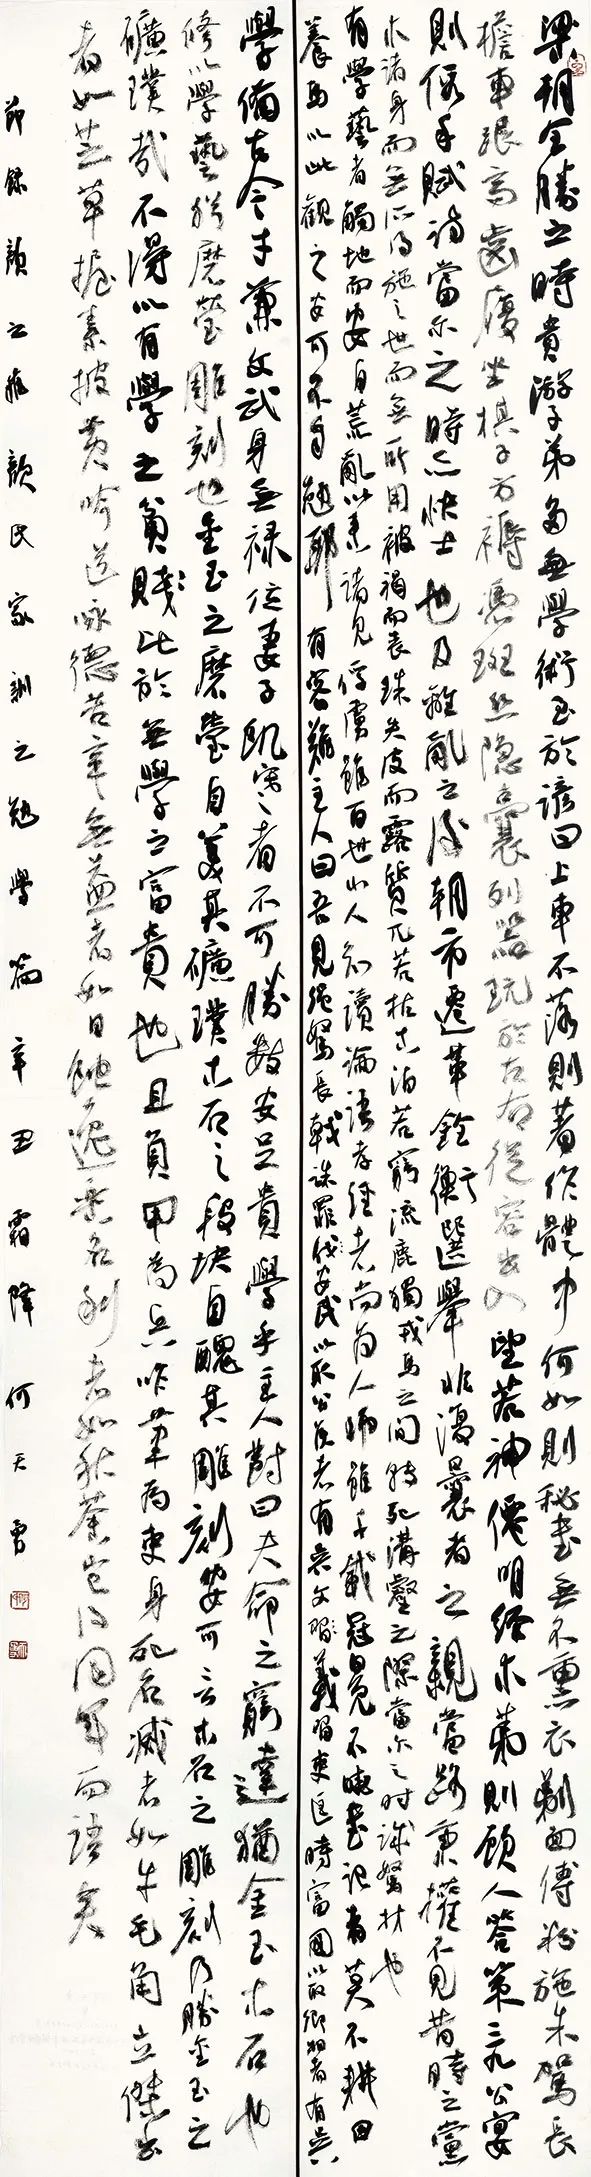 梁朝全勝之時貴游子弟多無學術至於諺曰上車不落則著作體中何如則秘書無不熏衣剃面傅粉施朱駕長
檐車跟高齒履坐棋子方褥憑斑絲隱囊列器玩於左右從容出入望若神僊明經求第則顧人答策三九公宴
則假手賦詩當尔之時亦快士也及離亂之後朝市遷革銓衡選舉非復曩者之親當路秉權不見昔時之黨
求諸身而無所得施之世而無所用被褐而喪珠失皮而露質兀若枯木泊若窮流鹿獨戎馬之間轉死溝壑之際當尔之時誠駑材也
有學藝者觸地而安自荒亂以來諸見俘虜雖百世小人知讀論語孝經者尚為人師雖千載冠冕不曉書記者莫不耕田
養馬以此觀之安可不自勉耶有客難主人曰吾見彊弩長戟誅罪伐安民以取公侯者有矣文習義習吏匡時富國以取卿相者有矣
學備古今才兼文武身無祿位妻子飢寒者不可勝數安足貴學乎主人對曰夫命之窮達猶金玉木石也
修以學藝猶磨瑩雕刻也金玉之磨瑩自美其礦璞木石之段塊自醜其雕刻安可言木石之雕刻乃勝金玉之
礦璞哉不得以有學之貧賤比於無學之富貴也且負甲為兵咋筆為吏身死名滅者如牛毛角立傑出
者如芝草握素披黃吟道咏德苦辛無益者如日蝕逸樂名利者如秋荼豈得同年而語矣
節錄顏之推顏氏家訓之勉學篇辛丑霜降何天勇